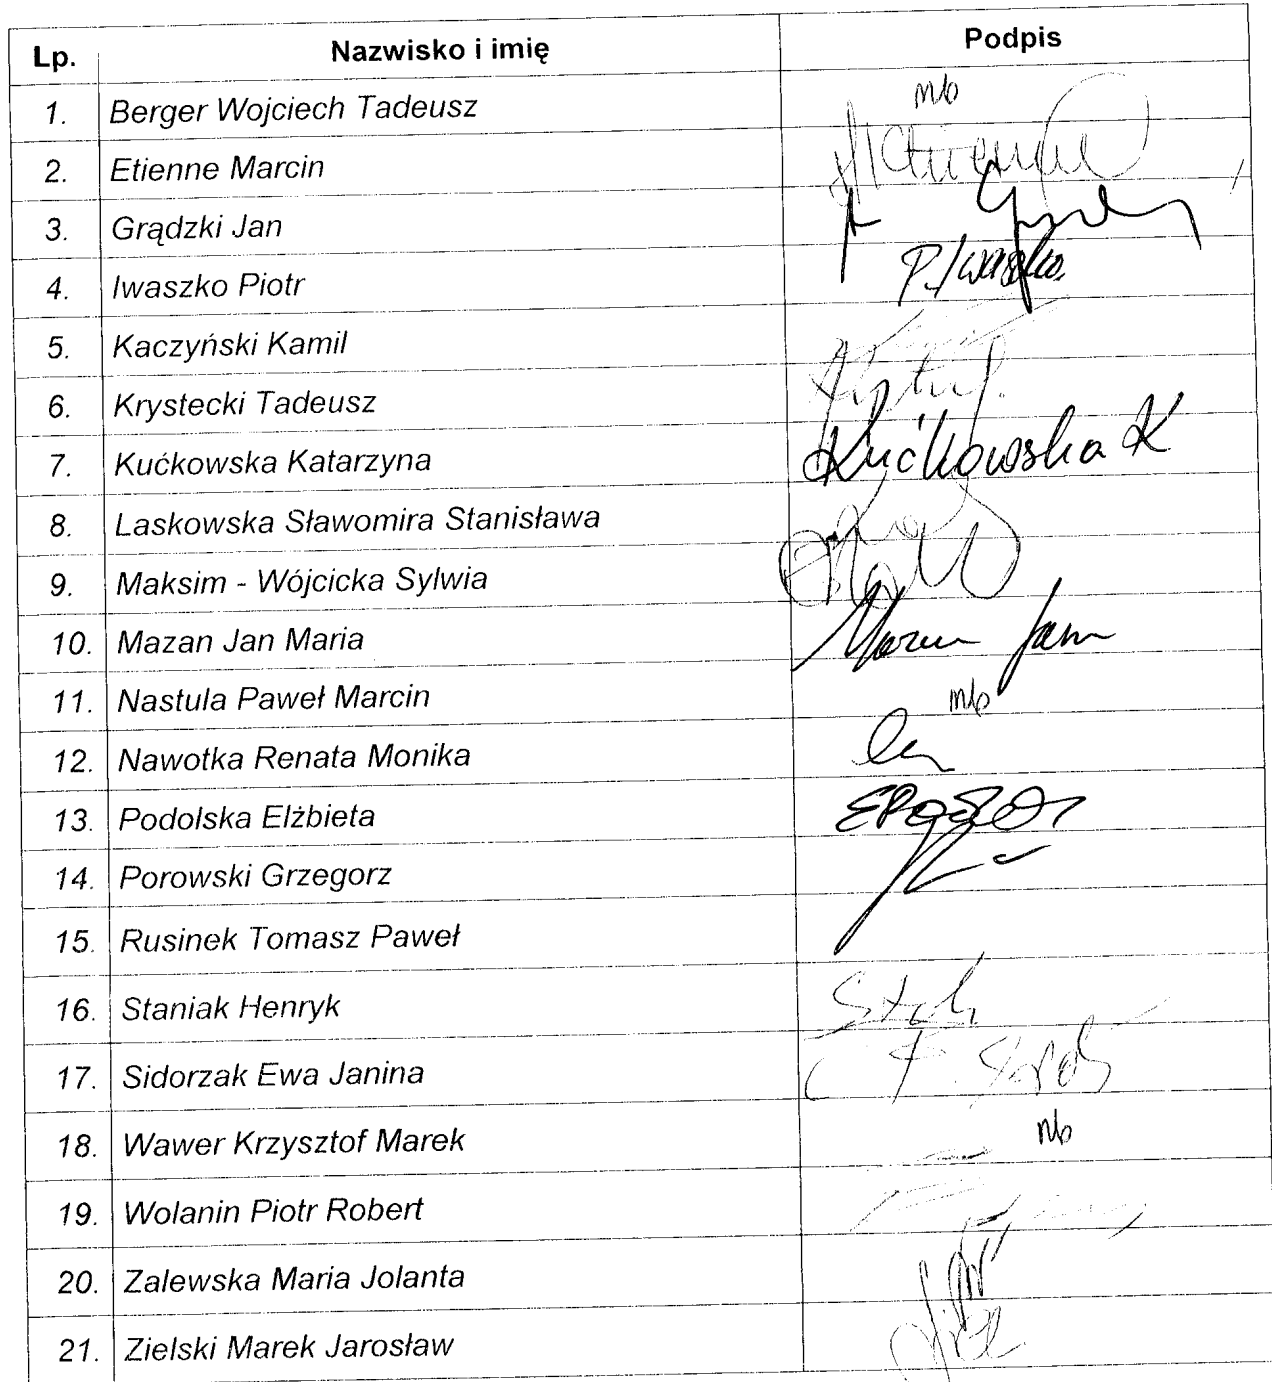 Lp. Nazwisko i imię Podpis
1. Berger Wojciech Tadeusz nb
2. Etienne Marcin
3. Grądzki Jan
4. Iwaszko Piotr P. Iwaszko
5. Kaczyński Kamil
6. Krystecki Tadeusz
7. Kućkowska Katarzyna Kućkowska K
8. Laskowska Sławomira Stanisława
9. Maksim - Wójcicka Sylwia
10. Mazan Jan Maria Mazan Jan
11. Nastula Paweł Marcin nb
12. Nawotka Renata Monika
13. Podolska Elżbieta
14. Porowski Grzegorz
15. Rusinek Tomasz Paweł
16. Staniak Henryk
17. Sidorzak Ewa Janina
18. Wawer Krzysztof Marek nb
19. Wolanin Piotr Robert
20. Zalewska Maria Jolanta
21. Zielski Marek Jarosław